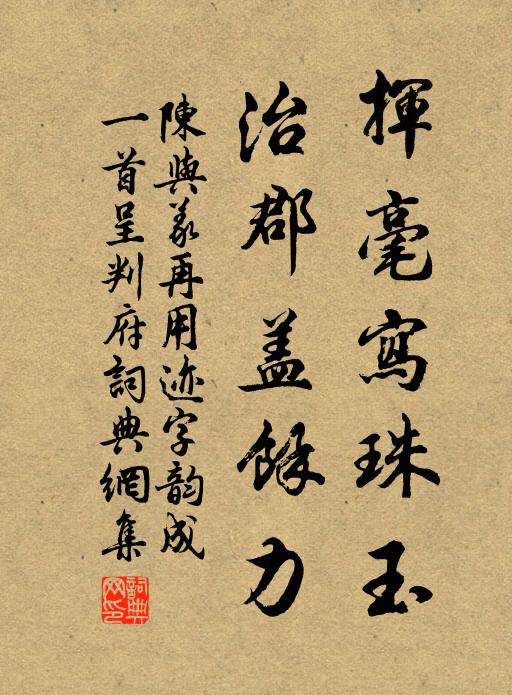 揮毫寫珠玉
治郡蓋餘力
陳與義再用迹字韵成
一首呈判府詞典網集
詞典
网印